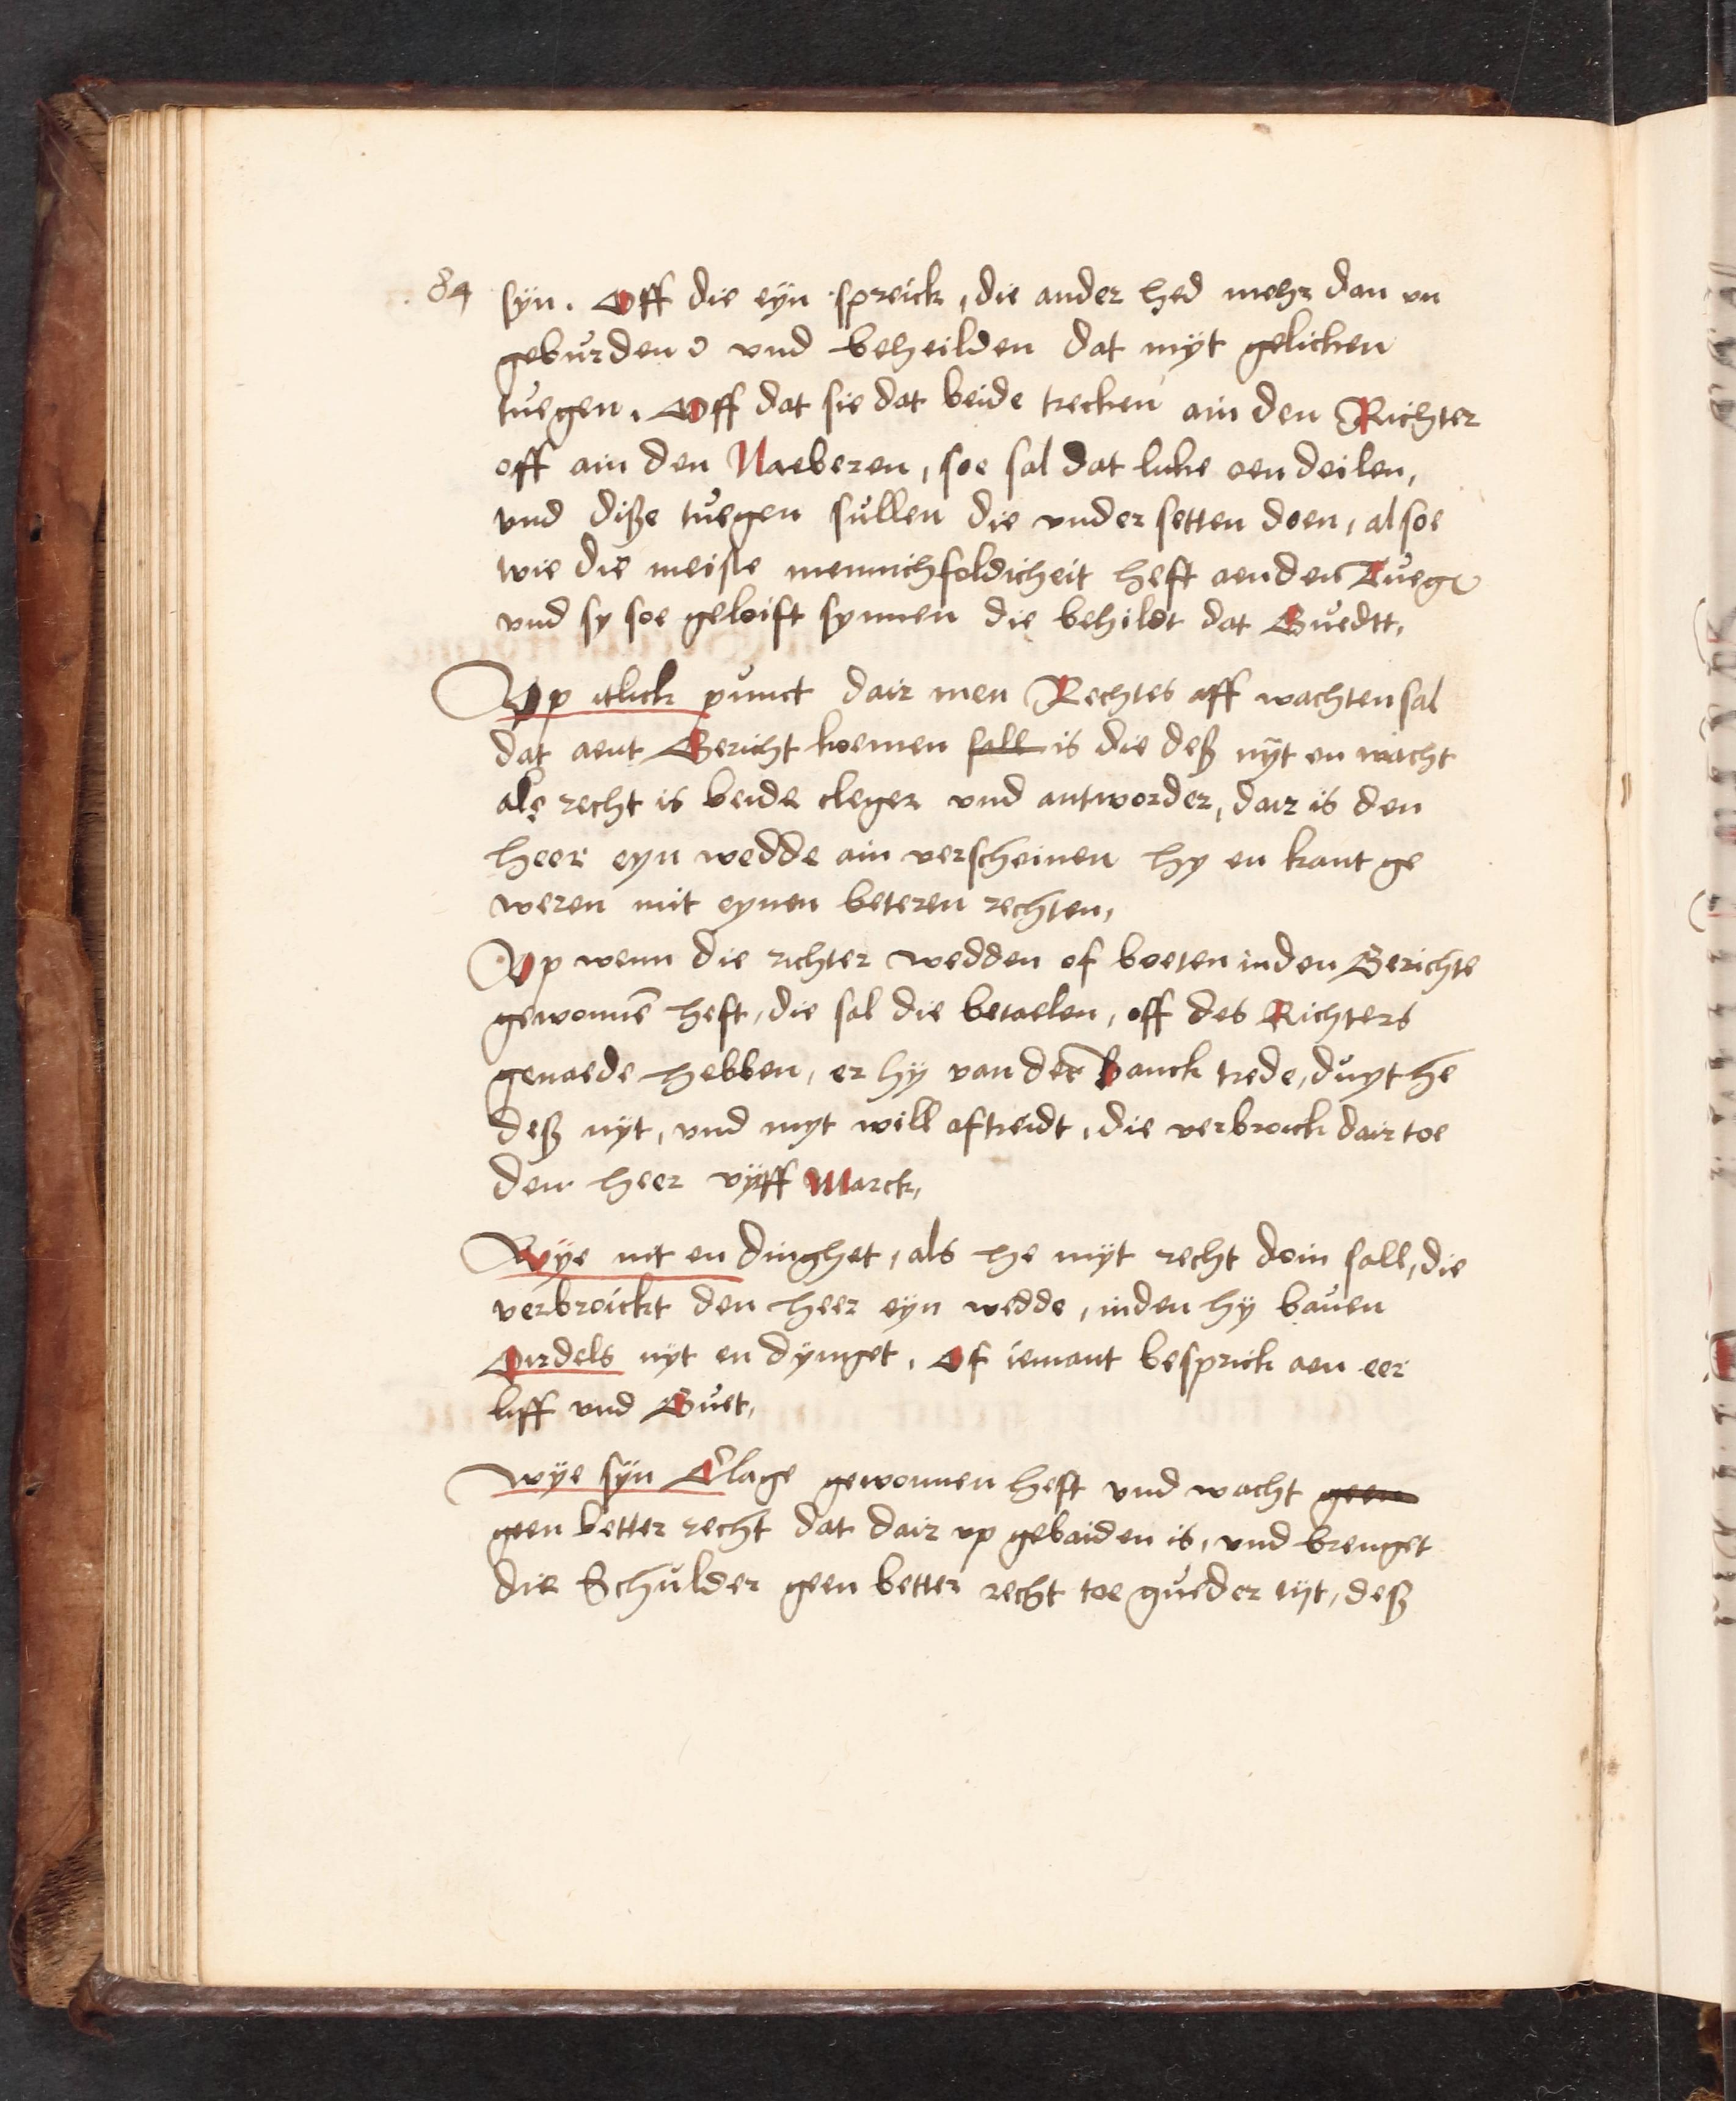 84 syn. Off die eyn spreick, die ander hed mehr dan vn
geburden d vnd beheilden dat myt gelicken
tuegen. Off dat sie dat beide trecken ain den Richter
off ain den Naeberen, soe sal dat luke aen deilen,
vnd diße tuegen sullen die vnder setten doen, al soe
wie die meiste mennichfoldicheit heft aenden Tueg
vnd sy soe geloift synnen die behildt dat Guedtt,
Vp itlick punct dair men Rechtes aff wachten sal
dat aent Gericht koemen sall is die deß nyt en wacht
als recht is beide cleger vnd antworder, dair is den
heer eyn wedde ain verscheinen hy en kant ge
weren mit eynen beteren rechten,
Vp wenn die richter wedden of boeten inden Gerichte
gewonnē heft, die sal die betaelen, off des Richters
genaede hebben, er hy van der banck trede, duyt he
deß nyt, vnd myt will aftreidt, die verbroick dair toe
den heer vyff Marck,
Wye nit en dinghet, als he myt recht doin sall, die
verbroickt den heer eyn wedde, inden hy bauen
Oirdels nyt en dynget, Of iemant besprick aen eer
liff vnd Guet,
Wye syn Clage gewonnen heft vnd wacht geen
geen better recht dat dair vp gebaiden is, vnd brenget
die Schulder geen better recht toe gueder tijt, deß